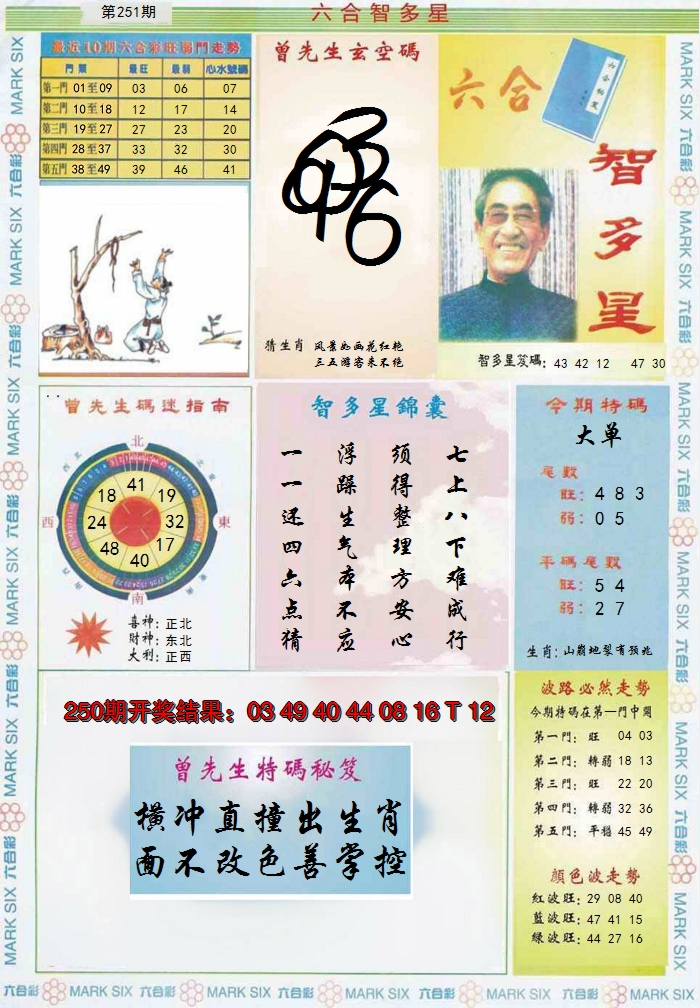 第251期
六合智多星
最近10期六合彩旺弱門走勢
門類 最旺 最弱 心水號碼
第一門 01至09 03 06 07
第二門 10至18 12 17 14
第三門 19至27 27 23 20
第四門 28至37 33 32 30
第五門 38至49 39 46 41
曾先生玄空碼
猜生肖 风景如画花红艳
三五游客来不绝
六合
智多星
智多星笈碼: 43 42 12 47 30
曾先生碼迷指南
北
西 東
南
41
18 19
24 32
48 17
40
喜神: 正北
財神: 东北
大利: 正西
智多星錦囊
七上八下难成行
须得整理方安心
浮躁生气本不应
一一还四六点猜
今期特碼
大单
尾數
旺: 4 8 3
弱: 0 5
平碼尾數
旺: 5 4
弱: 2 7
生肖: 山崩地裂有预兆
250期开奖结果: 03 49 40 44 08 16 T 12
曾先生特碼秘笈
横冲直撞出生肖
面不改色善掌控
波路必然走勢
今期特碼在第一門中開
第一門: 旺 04 03
第二門: 轉弱 18 13
第三門: 旺 22 20
第四門: 轉弱 32 36
第五門: 平穩 45 49
顏色波走勢
紅波旺: 29 08 40
藍波旺: 47 41 15
綠波旺: 44 27 16
MARK SIX 六合彩